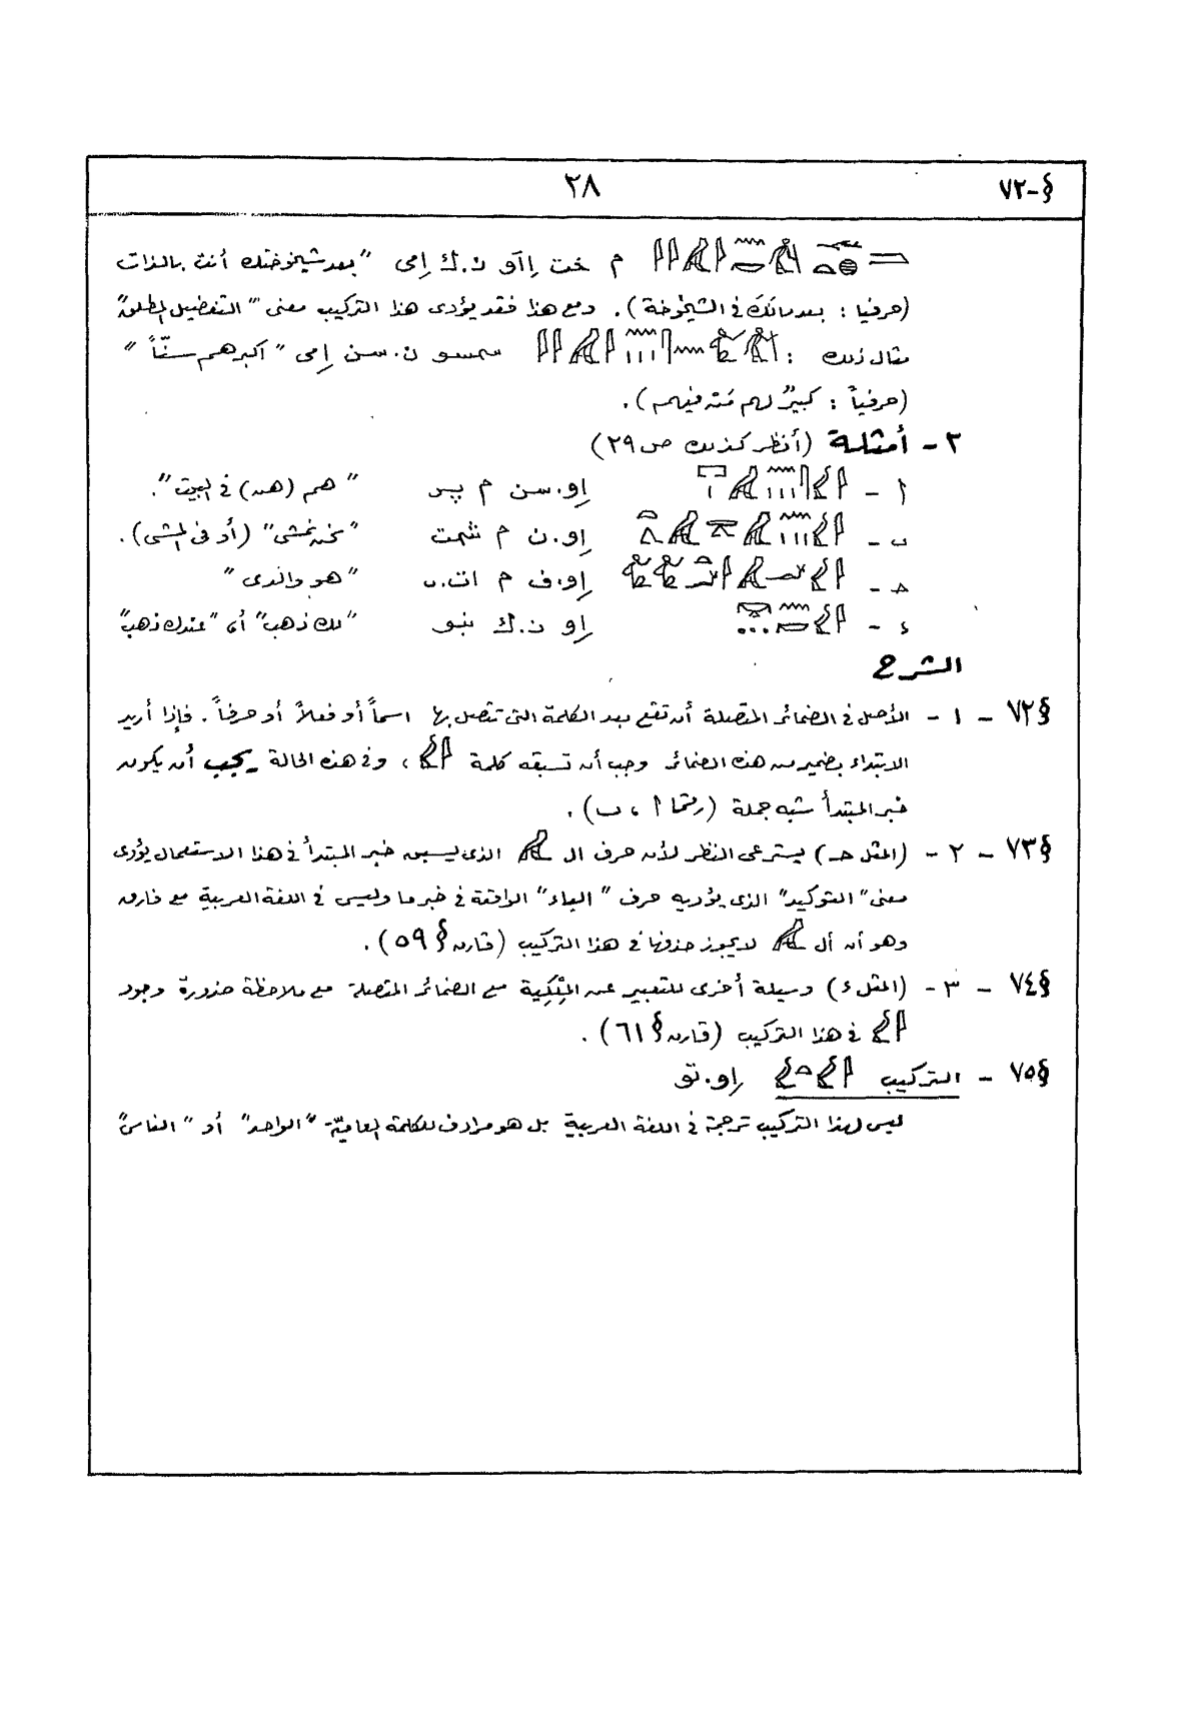 §-٧٢ ٢٨
م خت إآو ن.ك إمى "بعد شيخوختك أنت بالذات
(حرفيا : بعد مالك فى الشيخوخة). ومع هذا فقد يؤدى هذا التركيب معنى "التفضيل المطلق"
مثال ذلك : سمسو ن.سن إمى "اكبرهم سنّاً"
(حرفياً : كبيرٌ لهم فيهم).
٢ - أمثلة (أنظر كذلك ص ٢٩)
أ - إو.سن م پر "هم (هن) فى البيت".
ب - إو.ن م شمت "نحن نمشى" (أو فى المشى).
حـ - إو.ف م ات.ى "هو والدى"
ء - إو ن.ك نبو "لك ذهب" أى "عندك ذهب"
الشرح
§٧٢ - ١ - الأصل فى الضمائر المتصلة أن تقع بعد الكلمة التى تتصل بها اسماً أو فعلاً أو حرفاً. فإذا أريد
الابتداء بضمير من هذه الضمائر وجب أن تسبقه كلمة ، وفى هذه الحالة يجب أن يكون
خبر المبتدأ شبه جملة (رقما أ ، ب).
§٧٣ - ٢ - (المثل حـ) يسترعى النظر لأن حرف ال الذى يسبق خبر المبتدأ فى هذا الاستعمال يؤدى
معنى "التوكيد" الذى يؤديه حرف "الباء" الواقعة فى خبر ما وليس فى اللغة العربية مع فارق
وهو أن أل لا يجوز حذفها فى هذا التركيب (قارن § ٥٩).
§٧٤ - ٣ - (المثل ء) وسيلة أخرى للتعبير عن المِلْكِية مع الضمائر المتصلة مع ملاحظة ضرورة وجود
فى هذا التركيب (قارن § ٦١).
§٧٥ - التركيب إو.تو
ليس لهذا التركيب ترجمة فى اللغة العربية بل هو مرادف للكلمة العاميّة "الواحد" أو "الناس"